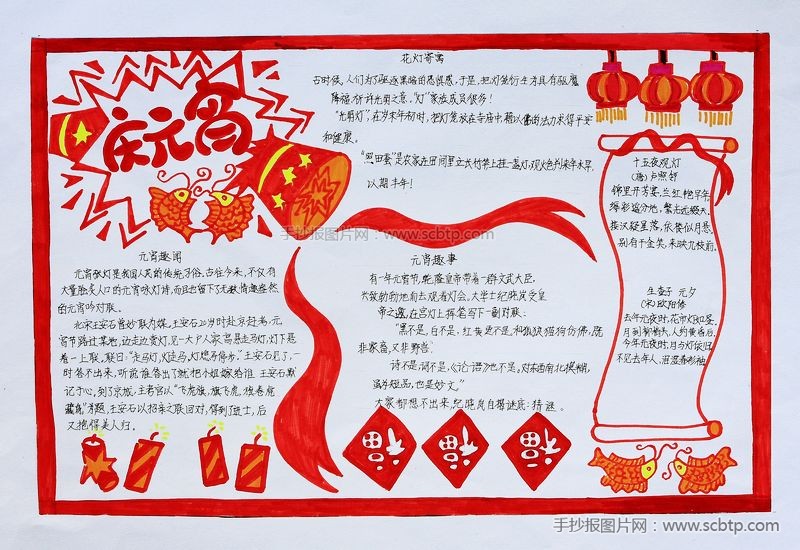 庆元宵
花灯寄寓
古时候,人们为了驱逐黑暗的恐惧感,于是,把灯笼衍生为具有驱魔
降福、祈许光明之意,“灯”家族成员很多!
“光明灯”,在岁末年初时,把灯笼放在寺庙中,藉以借法力求得平安
和健康。
“照田蚕”是农家在田间里立长竹竿上挂一盏灯,观火色判来年水旱,
以期丰年!
元宵趣闻
元宵张灯是我国人民的传统习俗,古往今来,不仅有
大量脍炙人口的元宵咏灯诗,而且也留下了无数情趣盎然
的元宵吟灯联。
北宋王安石曾妙联为媒,王安石20岁时赴京赶考,元
宵节路过某地,边走边赏灯,见一大户人家高悬走马灯,灯下悬
着一上联,联曰:“走马灯,灯走马,灯熄马停步。”王安石见了,一
时答不出来,听说谁答出了就把小姐嫁给谁,王安石默
记于心,到了京城,主考官以“飞虎旗,旗飞虎,旗卷虎
藏身”为题,王安石以招亲之联回对,得到了进士,后
又抱得美人归。
元宵趣事
有一年元宵节,乾隆皇帝带着一群文武大臣,
兴致勃勃地前去观看灯会,大学士纪晓岚受皇
帝之邀,在宫灯上挥笔写下一副对联:
“黑不是,白不是,红黄更不是,和狐狼猫狗仿佛,既
非家畜,又非野兽。
诗不是,词不是,《论语》也不是,对东西南北模糊,
虽为短品,也是妙文。”
大家都想不出来,纪晓岚自揭谜底:猜谜。
福
福
福
十五夜观灯
(唐)卢照邻
锦里开芳宴,兰红艳早年。
缛彩遥分地,繁光远缀天。
接汉疑星落,依楼似月悬。
别有千金笑,来映九枝前。
生查子 元夕
(宋)欧阳修
去年元夜时,花市灯如昼。
月到柳梢头,人约黄昏后。
今年元夜时,月与灯依旧。
不见去年人,泪湿春衫袖。
手抄报图片网:www.scbtp.com
手抄报图片网:www.scbtp.com